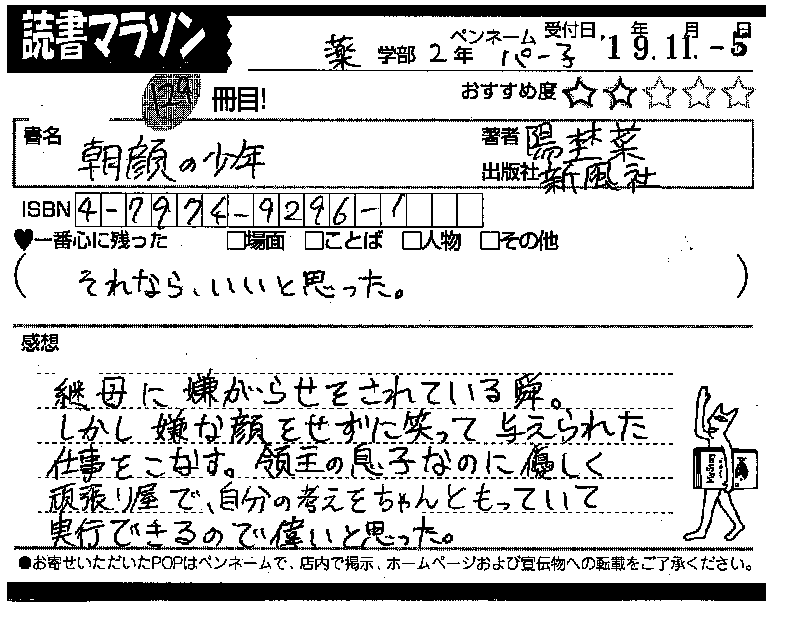 読書マラソン
薬 学部 2 年 ペンネーム パー子 受付日 '19.年11.月-5日
129 冊目!
おすすめ度 ☆☆☆☆☆
書名 朝顔の少年
著者 陽埜菜
出版社 新風社
ISBN 4-7974-9296-1
♥一番心に残った □場面 □ことば □人物 □その他
(それなら、いいと思った。)
感想
継母に嫌がらせをされている舜。
しかし嫌な顔をせずに笑って与えられた
仕事をこなす。領主の息子なのに優しく
頑張り屋で、自分の考えをちゃんともっていて
実行できるので偉いと思った。
●お寄せいただいたPOPはペンネームで、店内で掲示、ホームページおよび宣伝物への転載をご了承ください。